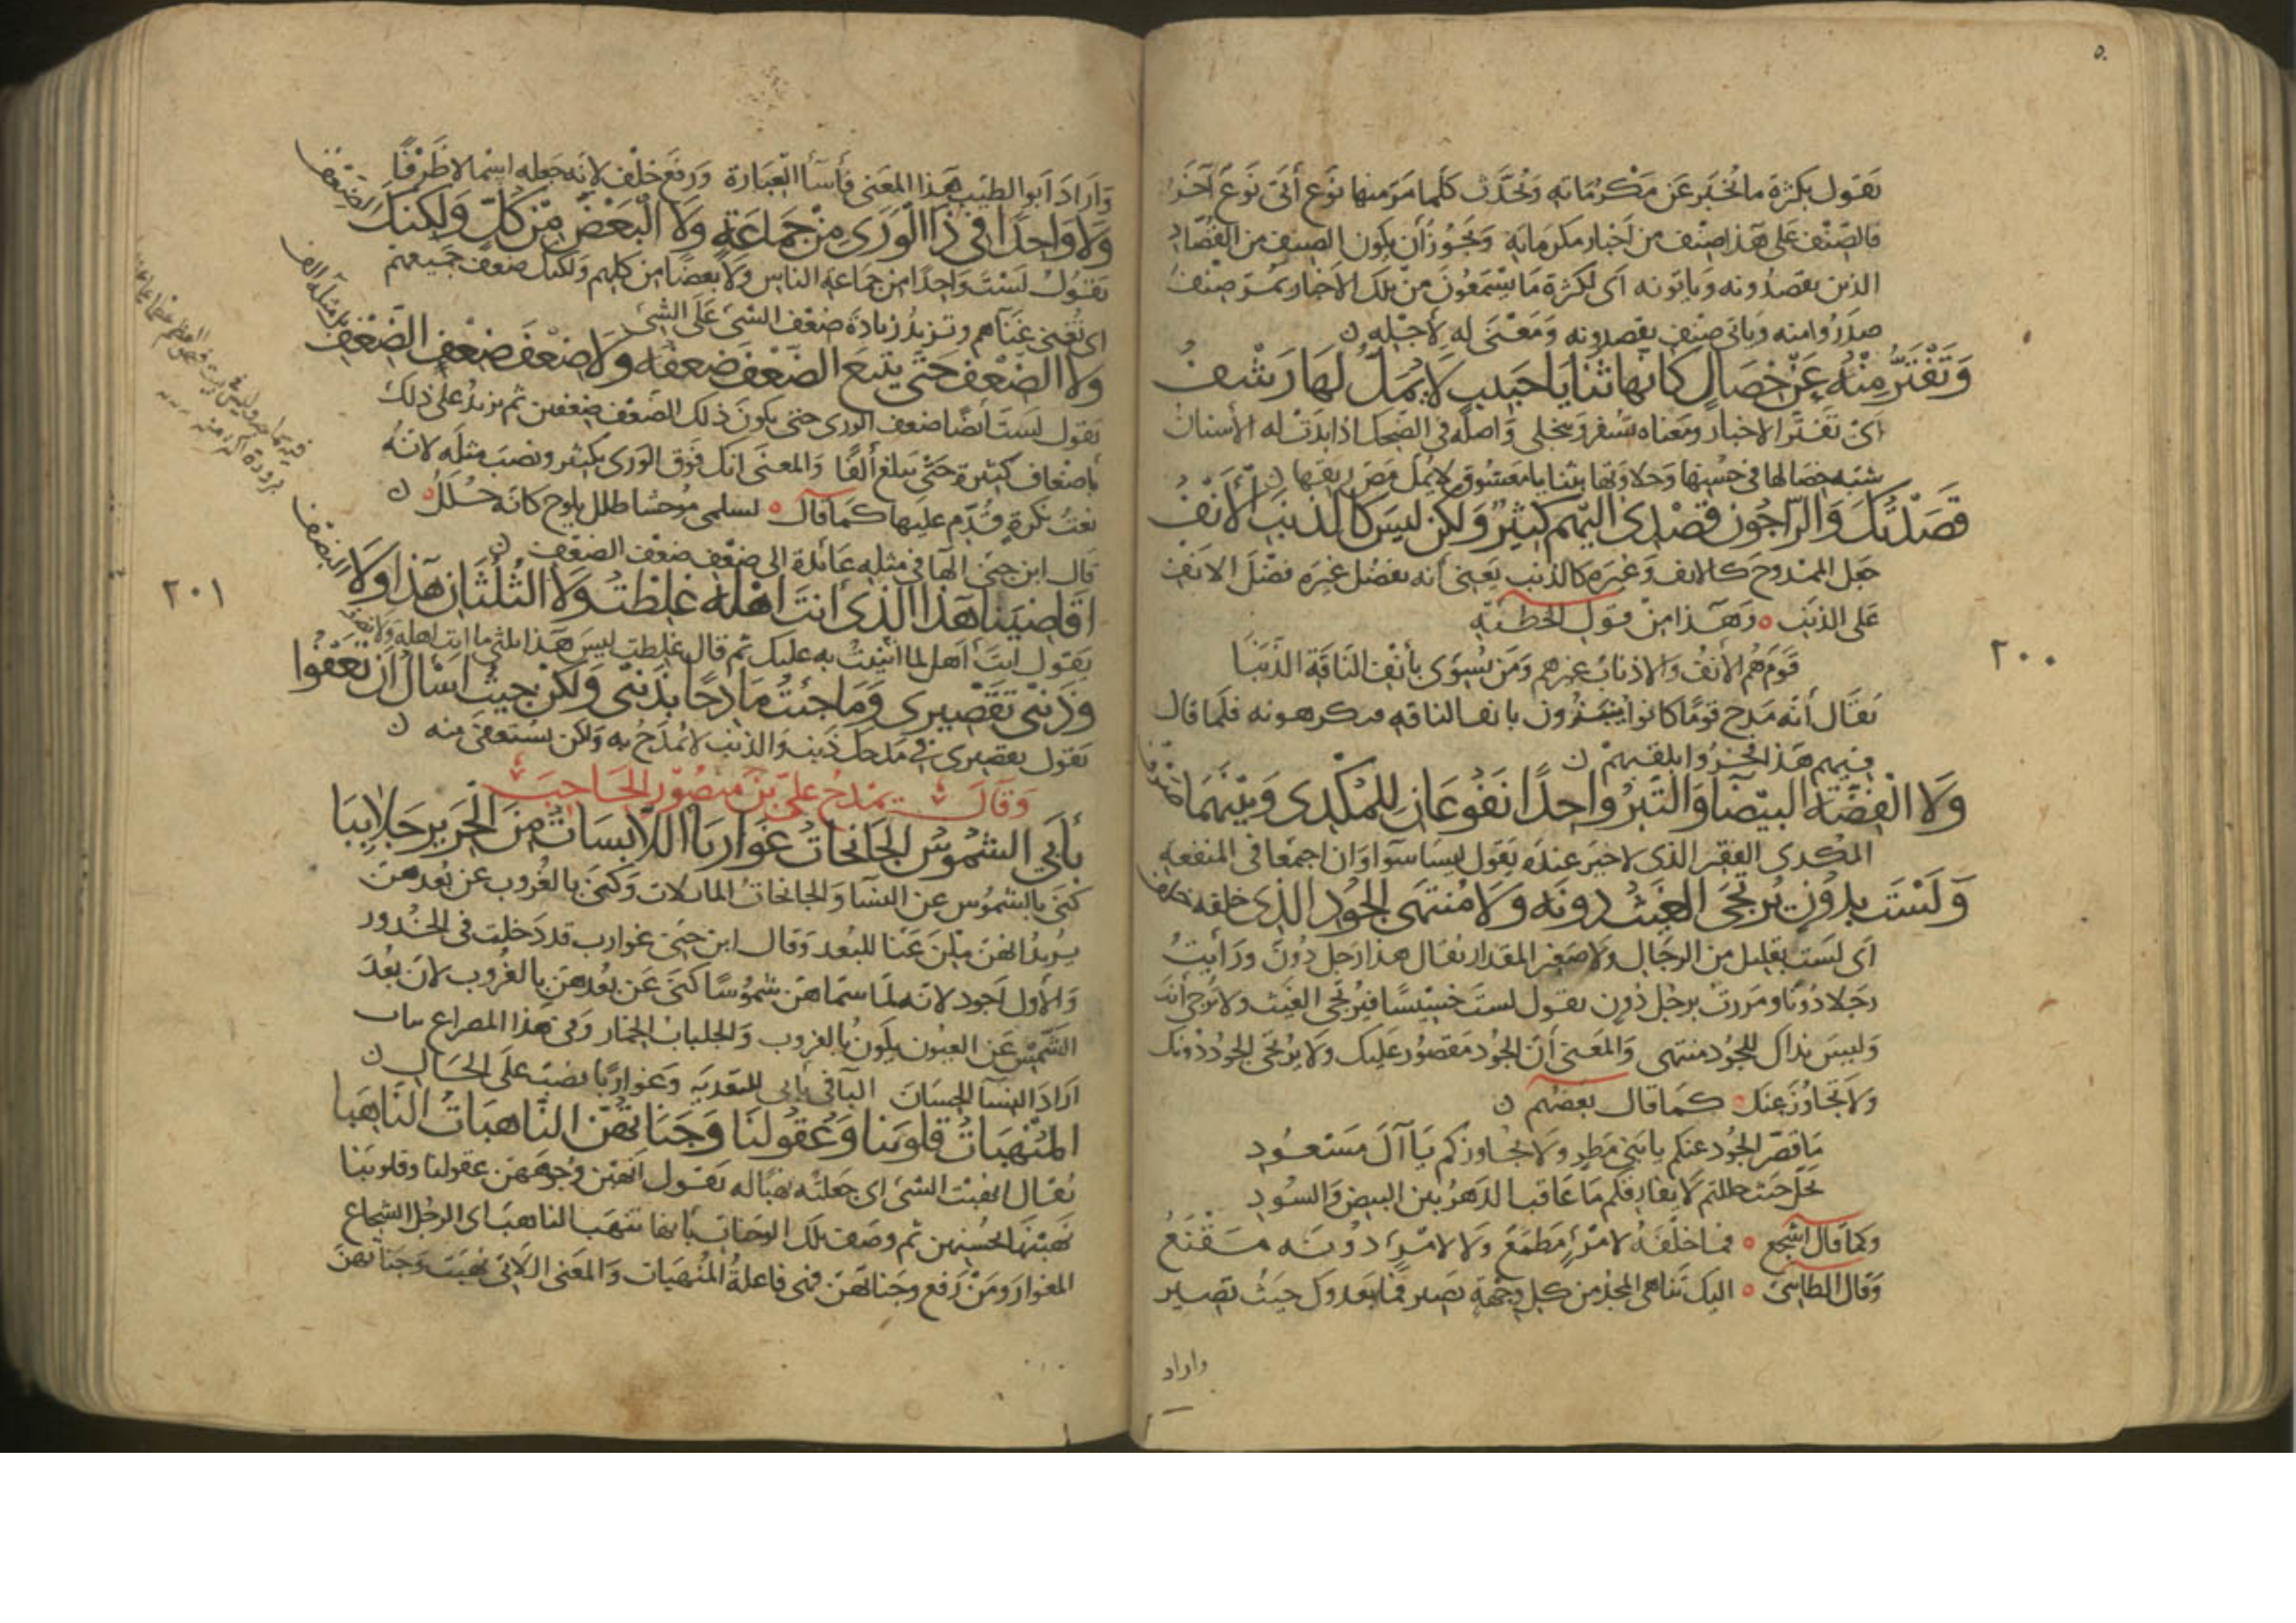 ٥٠
يقول بكثرة ما يخبر عن مكرماته وتحدث كلما مر منها نوع أتى نوع آخر
فالصنف على هذا صنف من أخبار مكرماته ويجوز أن يكون الصنف من القصاد
الذين يقصدونه وياتونه اى لكثرة ما يسمعون من تلك الاخبار يمر صنف
صدروا منه وياتى صنف يقصدونه ومعنى له لأجله ن
وَتَفْتَرُّ مِنْهُ عَنْ خِصَالٍ كَانها ثنَايَا حَبيب لَا يُمَلُّ لَهَا رَشْفُ
اى تفتر الاخبار ومعناه تسفر وتنجلى واصله فى الضحك اذا بدت له الأسنان
شبه خصالها فى حسنها وحلاوتها بثنايا معشوق لا يمل مص ريقها ن
قَصَدْتُكَ وَالرّاجُونَ قَصْدى اليهم كثيرٌ وَلكن ليسَ كالذنَب الأَنْفُ
جعل الممدوح كالانف وغيره كالذنب يعنى أنه يفضل غيره فضل الانف
على الذنب ٥ وهذا من قول الحطيئة
قوم هُم الأنفُ والاذنابُ غيرهم ومَن يُسوّى بأنف الناقة الذنبا
يقال أنه مدح قوما كانوا ينبزون بانف الناقه فيكرهونه فلما قال
فيهم هذا فخروا بلقبهم ن
وَلا الفِضَّة البَيْضَا وَالتِّبْرُ وَاحِدًا نَفُوعَانِ لِلمُكْدى وَبَيْنَهُمَا صَرْفُ
المكدى الفقير الذى لا خير عنده يقول ليسا سوا وان اجتمعا فى المنفعه
وَلَسْتَ بدُونٍ يُرتجَى الغَيثُ دونَه وَلا مُنتهَى الجُودِ الذى خلفه خلف
اى لست بقليل من الرجال ولا صغير المقدار يقال هذا رجل دُونٌ ورأيتُ
رجلا دُونًا ومررت برجل دُونٍ يقول لست خسيسا فيرتجى الغيث ولا تُرجى أنت
وليس نداك للجود منتهى والمعنى أن الجود مقصور عليك ولا يرتجى الجود دونك
ولا تجاوز عنك ٥ كما قال بعضهم ن
ما قصر الجود عنكم يا بنى مطر ولا تجاوزكم يا آل مسعود
يحل حيث حللتم لا يفارقكم ما عاقب الدهر بين البيض والسود
وكما قال اشجع ٥ فما خلفه لامرئ مطمع ولا لامرئ دونه مقنع
وقال الطاىى ٥ اليك تناهى المجد من كل وجهة يصير فما يعدوك حيث تصير
٢٠٠
واراد
وَأرادَ أبو الطيب هذا المعنى فأسأ العبارة ورفع خلف لانه جعله اسما لا ظرفًا
وَلا واحِدًا فى ذا الوَرى مِنْ جَماعَةٍ وَلا البَعْضُ مِن كُلٍّ وَلكِنكَ الضِعْفُ
يقول لستَ واحدًا من جماعة الناس ولا بعضا من كلهم ولكنك ضعف جميعهم
اى تغنى غناهم وتزيد زيادة ضعف الشئ على الشئ
وَلا الضِعْفَ حَتّى يتبعَ الضعْفَ ضعفُه وَلا ضعْفَ ضعْفِ الضِّعْفِ بل مثله الف
يقول لست أيضا ضعف الورى حتى يكون ذلك الضعف ضعفين ثم يزيد على ذلك
بأضعاف كثيرة حتى يبلغ ألفًا والمعنى انك فوق الورى بكثير ونصب مثله لانه
نعت نكرة قدم عليها كما قال ٥ لسلمى موحشا طلل يلوح كانه خلل ٥ ن
قال ابن جنى الها فى مثله عائدة الى ضعف ضعف الضعف ن
اقَاضِيَنا هَذا الّذى أنتَ اهْلُه غلِطْتُ وَلا الثُلْثَانِ هَذا وَلا النِصْفُ
يقول انت أهل لما أثنيت به عليك ثم قال غلطت ليس هذا بثلثى ما انت اهله ولا نصفه
وَذَنْبى تَقصِيرى وَمَا جئتُ مَادِحًا بذَنْبى وَلكن جيتُ اسْألُ ان تَعْفُوا
يقول تقصيرى فى مدحك ذنب والذنب لا يُمدح به ولكن يستعفى منه ن
وَقالَ يمدحُ علىّ بن منصور الحَاجِبَ
بأبى الشُمُوسُ الجَانحاتُ غَوَارِبَا اللابِسَاتُ مِنَ الحَرِيرِ جَلابِبَا
كنى بالشموس عن النسا والجانحات المائلات وكنى بالغروب عن بُعدهن
يريد انهن ملن عنا للبعد وقال ابن جنى غوارب قد دخلت فى الخدور
والأول أجود لانه لما سماهن شموسا كنى عن بعدهن بالغروب لان بعد
الشمس عن العيون يكون بالغروب والجلباب الخمار وفى هذا المصراع بيان
اراد النسا الحسان البا فى بأبى للتفدية وغواربًا نصب على الحال ن
المُنْهِبَاتُ قلوبَنا وَعُقُولَنا وَجَنَاتِهُنّ النَّاهِبَاتُ النَّاهِبَا
يقال انهبت الشئ اى جعلته نهبا له يقول انهبن وجوههن عقولنا وقلوبنا
نهبنها بحسنهن ثم وصف تلك الوجنات بانها تنهب الناهبا اى الرجل الشجاع
المغوار ومن رفع وجناتهن فهى فاعلة المنهبات والمعنى اللاتى نهبت وجناتهن
٢٠١